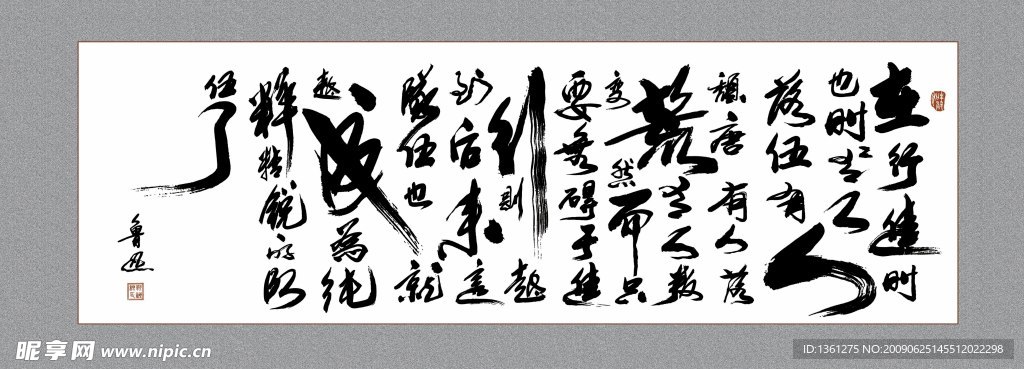 在行進时
也时々有人
落伍有人
颓唐有人落
荒有人叛
变然而只
要无碍于進
行则越
到后来这
队伍也就
越成为纯
粹精锐的队
伍了
鲁迅
昵享网 www.nipic.cn
ID:1361275 NO:20090625145512022298